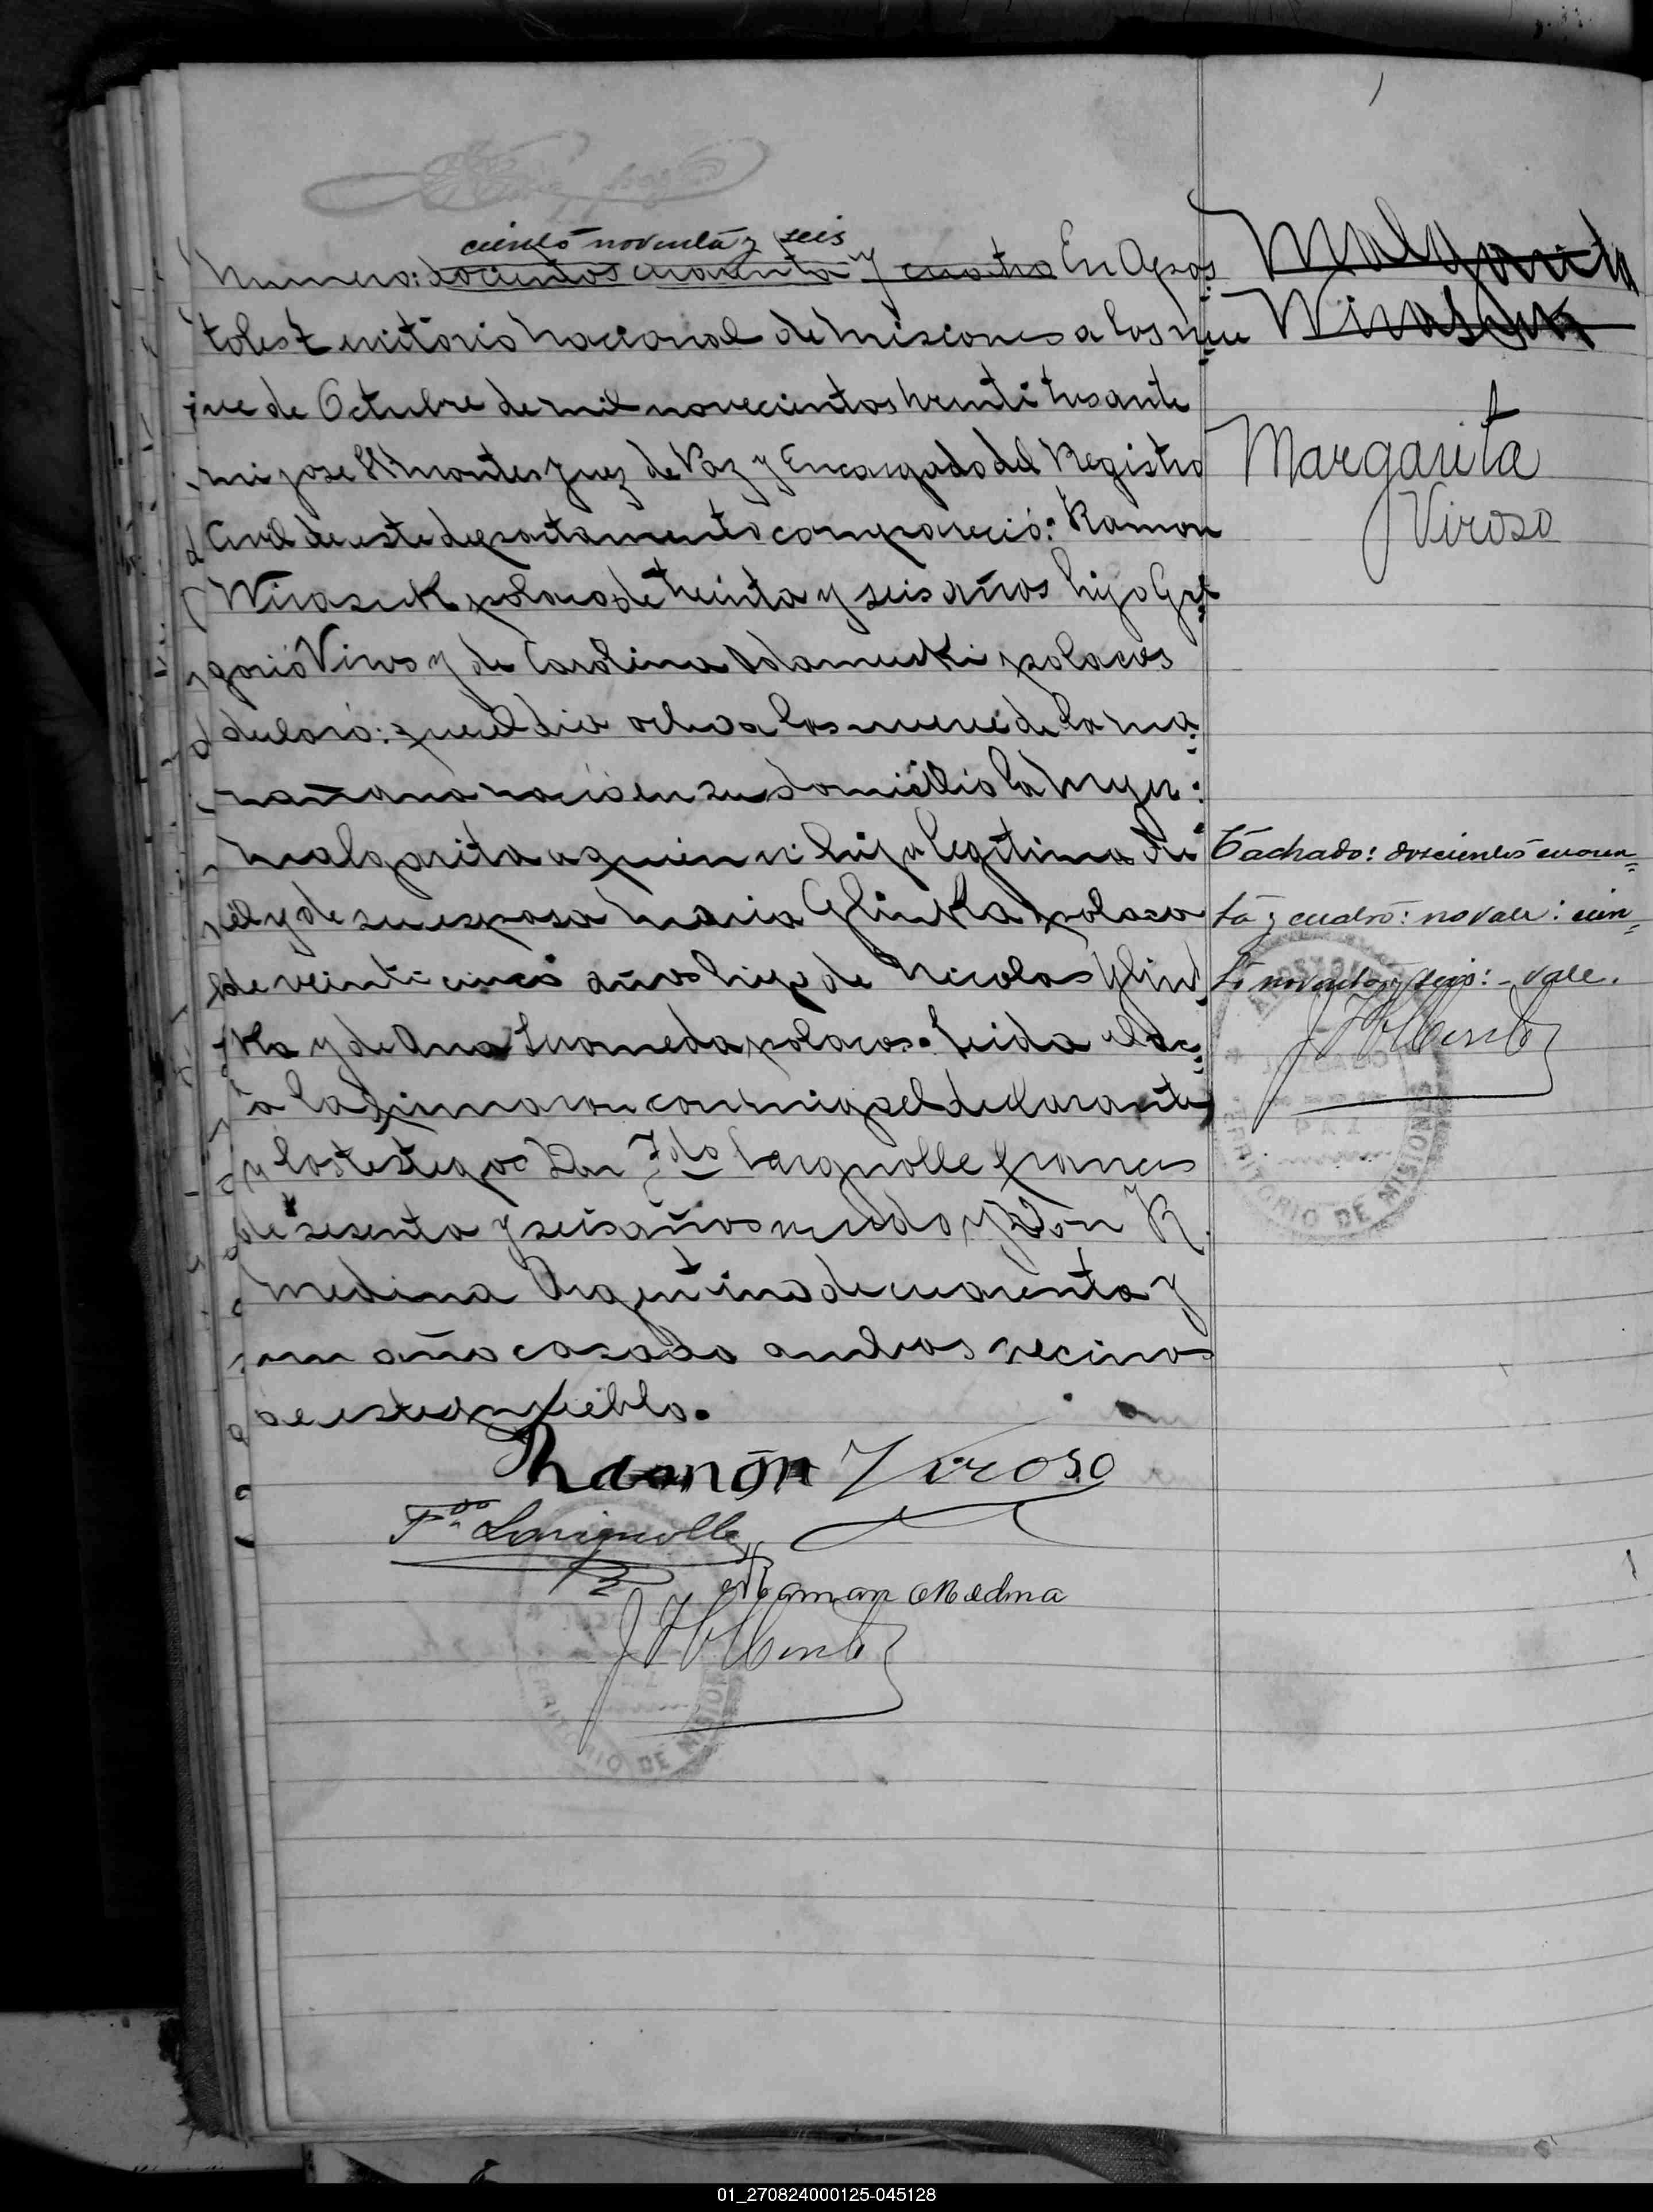 ciento noventa y seis
Numero: docientos cuarenta y cuatro En Apos
toles Territorio Nacional de Misiones a los nue
ve de Octubre de mil novecientos treinti tres ante
mi Jose H Montes Juez de Paz y Encargado del Registro
Civil de este departamento compareció: Ramon
Wirasuk polaco de treinta y seis años hijo Gre
gorio Viros y de Carolina Adamuski polacos
declaró: que el dia ocho a las nueve de la ma
ñana nació en su domicilio la mujer:
Malgarita a quien vi hija legitima de
él y de su esposa Maria Glinka polaca
de veinti cinco años hija de Nicolas Glin
ka y de Ana polacos. Leida el ac
a la firmaron conmigo el declarante
y los testigos Don Fdo Lavignolle frances
de sesenta y seis años viudo y Don R.
Medina Argentino de cuarenta y
un año casado ambos vecinos
de este pueblo.
Ramón Viroso
Fdo Lavignolle
Roman Medina
J H Montes
Malgarita
Wirasuk
Margarita
Viroso
Tachado: doscientos cuaren
ta y cuatro: no vale: cien
to noventa y seis: - vale.
J H Montes
JUZGADO
PAZ
TERRITORIO DE MISIONES
TERRITORIO DE MISIONES
01_270824000125-045128